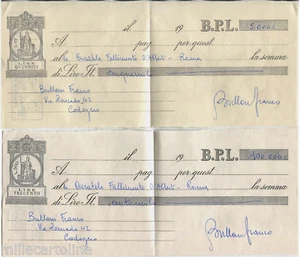 LIRE
QUINDICI
il 19 B.P.L. 50000
A pag. per quest
al Curatela Fallimento D'Alberti - Roma la somma
di Lire It. cinquemila
Bulloni Franco
Via 42
Codogno
Bulloni Franco
LIRE
TRECENTO
il 19 B.P.L. 100.000
A pag. per quest
al Curatela Fallimento D'Alberti - Roma la somma
di Lire It. centomila
Bulloni Franco
Via 42
Codogno
Bulloni Franco
millecartoline